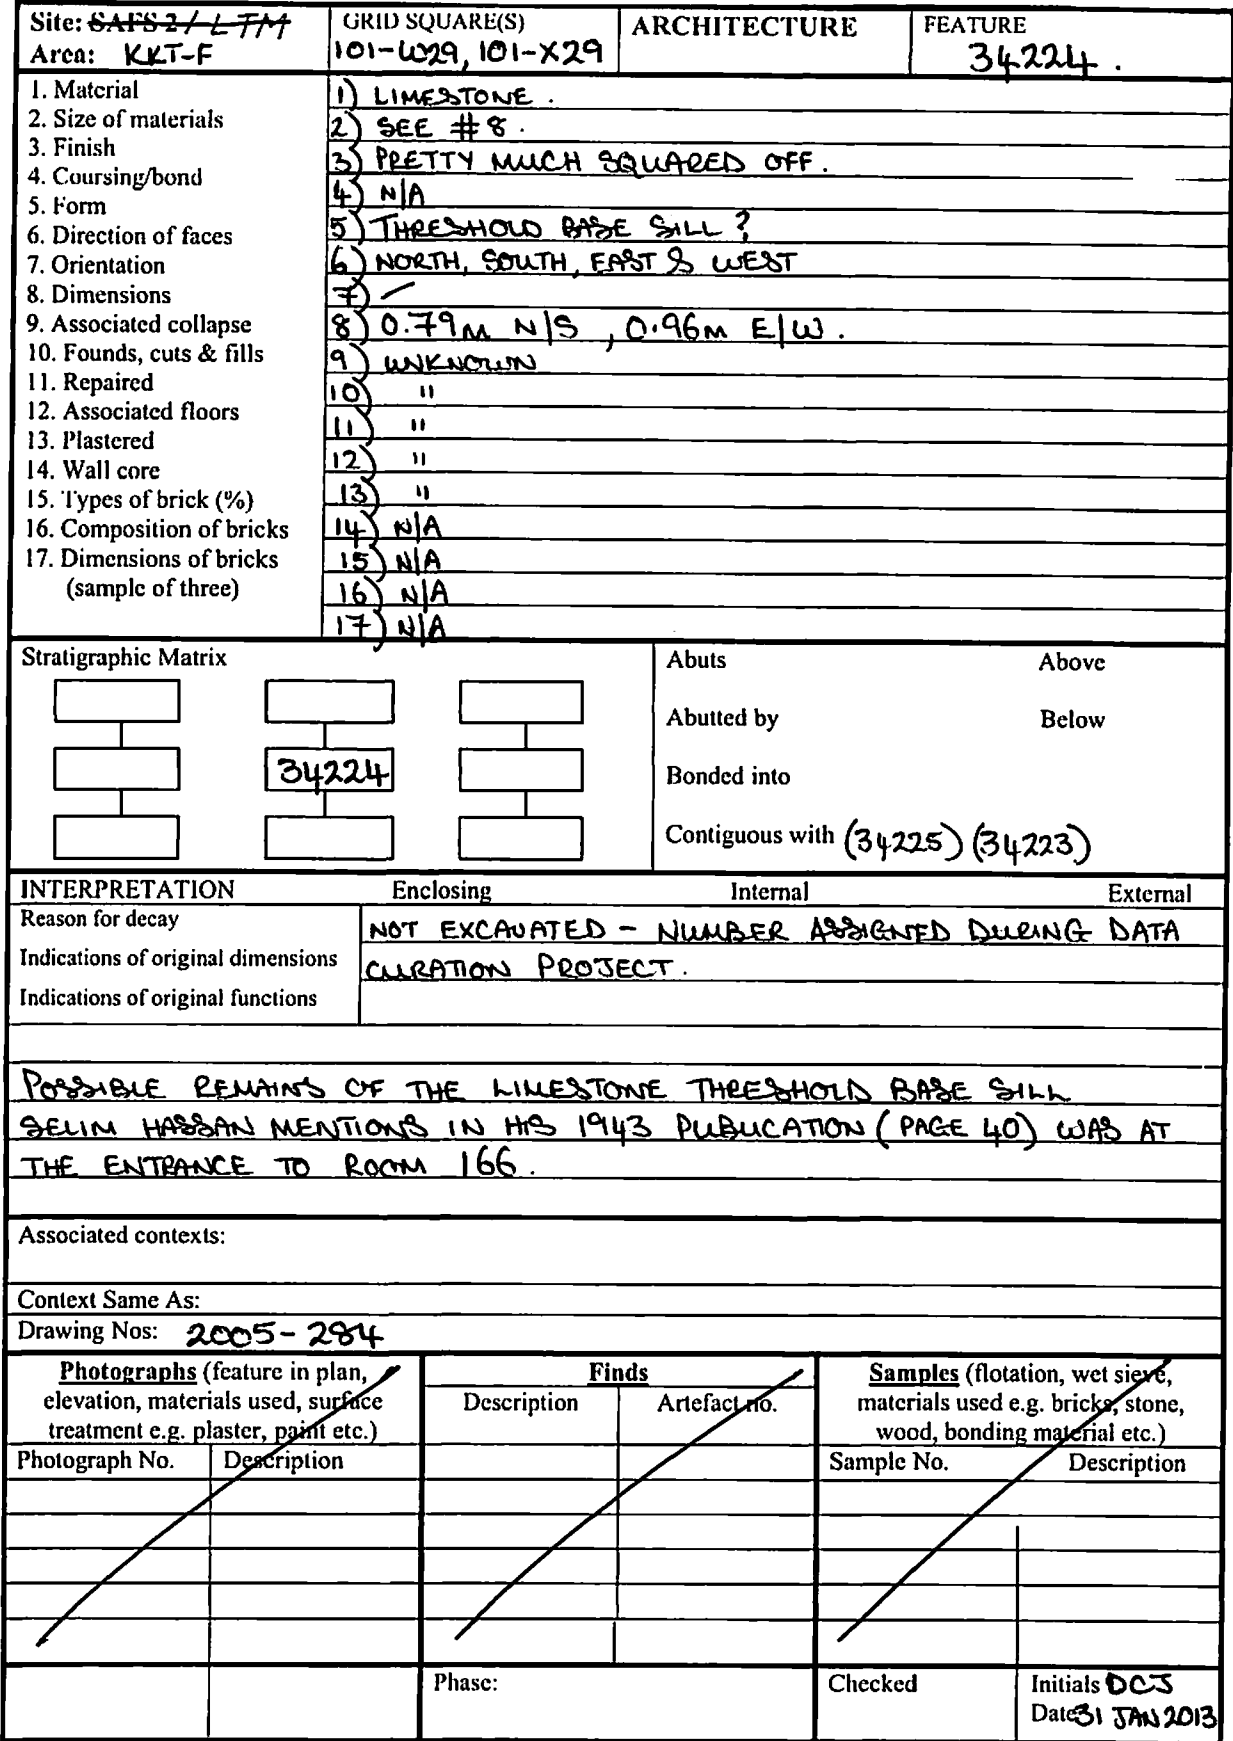 Site: SAFS 2 / LTM
Area: KKT-F
GRID SQUARE(S)
101-W29, 101-X29
ARCHITECTURE
FEATURE
34224.
1. Material
2. Size of materials
3. Finish
4. Coursing/bond
5. Form
6. Direction of faces
7. Orientation
8. Dimensions
9. Associated collapse
10. Founds, cuts & fills
11. Repaired
12. Associated floors
13. Plastered
14. Wall core
15. Types of brick (%)
16. Composition of bricks
17. Dimensions of bricks
(sample of three)
1) LIMESTONE.
2) SEE #8.
3) PRETTY MUCH SQUARED OFF.
4) N/A
5) THRESHOLD BASE SILL?
6) NORTH, SOUTH, EAST & WEST
7) –
8) 0.79m N/S, 0.96m E/W.
9) UNKNOWN
10) "
11) "
12) "
13) "
14) N/A
15) N/A
16) N/A
17) N/A
Stratigraphic Matrix
34224
Abuts Above
Abutted by Below
Bonded into
Contiguous with (34225) (34223)
INTERPRETATION Enclosing Internal External
Reason for decay
Indications of original dimensions
Indications of original functions
NOT EXCAVATED - NUMBER ASSIGNED DURING DATA
CURATION PROJECT.
POSSIBLE REMAINS OF THE LIMESTONE THRESHOLD BASE SILL
SELIM HASSAN MENTIONS IN HIS 1943 PUBLICATION (PAGE 40) WAS AT
THE ENTRANCE TO ROOM 166.
Associated contexts:
Context Same As:
Drawing Nos: 2005-284
Photographs (feature in plan,
elevation, materials used, surface
treatment e.g. plaster, paint etc.)
Photograph No. Description
Finds
Description Artefact no.
Samples (flotation, wet sieve,
materials used e.g. bricks, stone,
wood, bonding material etc.)
Sample No. Description
Phase:
Checked
Initials DCJ
Date 31 JAN 2013